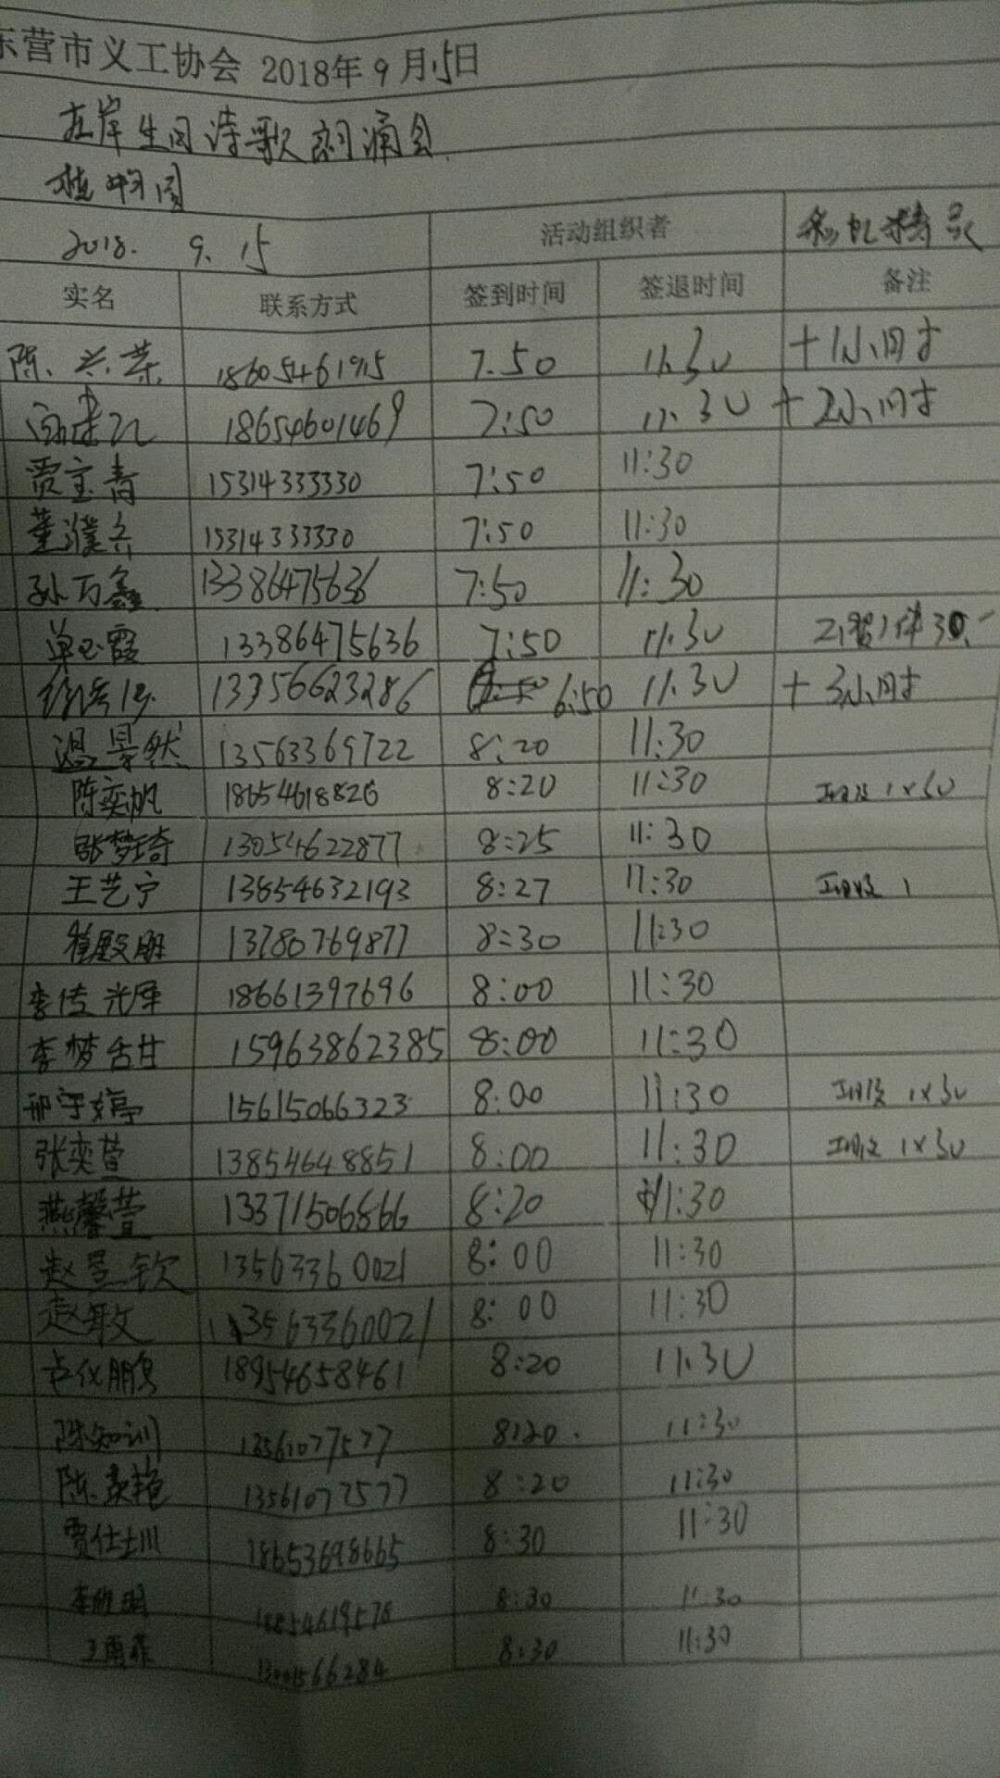 东营市义工协会 2018年9月15日
左岸生日诗歌朗诵会
植物园
2018. 9. 15 活动组织者
实名 联系方式 签到时间 签退时间 备注
陈兰荣 18605461915 7.50 11.30 +1小时
18654601469 7:50 11.30 +2小时
贾宝青 15314333330 7:50 11:30
董濮兵 15314333330 7:50 11:30
孙万鑫 13386475636 7:50 11:30
单玉霞 13386475636 7:50 11.30
13356623286 6:50 11.30 +3小时
温景然 13563369722 8:20 11:30
陈奕帆 18654618826 8:20 11:30 1×30
张梦琦 13054622877 8:25 11:30
王艺宁 13854632193 8:27 11:30 1
程殿朋 13780769877 8:30 11:30
李传光 18661397696 8:00 11:30
李梦 15963862385 8:00 11:30
邢宇婷 15615066323 8:00 11:30 1×30
张奕萱 13854648851 8:00 11:30 1×30
燕馨萱 13371506866 8:20 11:30
赵昱钦 13563360021 8:00 11:30
赵敏 13563360021 8:00 11:30
卢仪鹏 18954658461 8:20 11.30
陈知训 13561077577 8:20 11:30
陈英艳 13561077577 8:20 11:30
贾仕川 18653698665 8:30 11:30
8:30 11:30
王雨菲 8:30 11:30